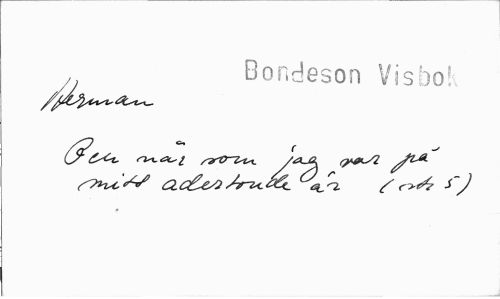 Bondeson Visbok
Herman
Och när som jag var på
mitt adertonde år (str 5)